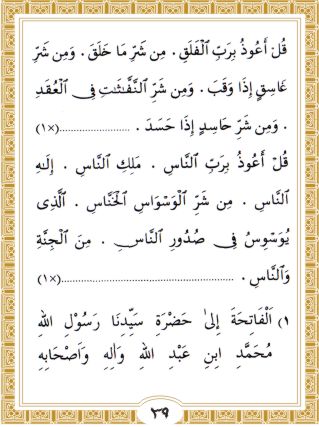 قُلْ أَعُوذُ بِرَبِّ الْفَلَقِ . مِن شَرِّ مَا خَلَقَ . وَمِن شَرِّ
غَاسِقٍ إِذَا وَقَبَ . وَمِن شَرِّ النَّفَّـٰثَـٰتِ فِى الْعُقَدِ
. وَمِن شَرِّ حَاسِدٍ إِذَا حَسَدَ . ....................(×١)
قُلْ أَعُوذُ بِرَبِّ النَّاسِ . مَلِكِ النَّاسِ . إِلَـٰهِ
النَّاسِ . مِن شَرِّ الْوَسْوَاسِ الْخَنَّاسِ . الَّذِى
يُوَسْوِسُ فِى صُدُورِ النَّاسِ . مِنَ الْجِنَّةِ
وَالنَّاسِ . ..................................................(×١)
١) اَلْفَاتِحَةَ إِلىٰ حَضْرَةِ سَيِّدِنَا رَسُوْلِ اللهِ
مُحَمَّدِ ابنِ عَبْدِ اللهِ وَاٰلِهِ وَاَصْحَابِهِ
٣٩